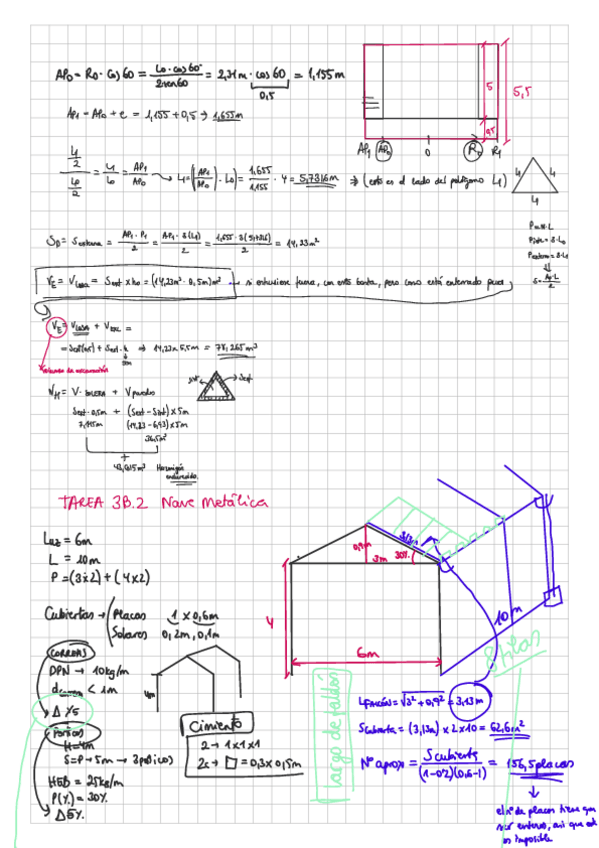 AP₀ = R₀ · Cos 60 = L₀ · cos 60° / 2 sen 60 = 2,31 m · cos 60 = 1,155 m
0,5
5
5,5
0,5
AP₁ = AP₀ + e = 1,155 + 0,5 → 1,655 m
AP₁ AP₀ 0 R₀ R₁
L₁/2 / L₀/2 = L₁/L₀ = AP₁/AP₀ → L₁ = (AP₁/AP₀ · L₀) = 1,655/1,155 · 4 = 5,7316 m ⇒ (esto es el lado del polígono L₁)
L₁ L₁
L₁
P = N·L
S_D = S externa = AP₁ · P₁ / 2 = AP₁ · 3(L₁) / 2 = 1,655 · 3(5,7316) / 2 = 14,23 m²
P externo = 3·L₁
V_E = V LOSA = S ext x h₀ = (14,23 m² · 0,5m) m² → si estuviese fuera, con esto basta, pero como está enterrado pues
V_E = V LOSA + V EXC =
⇒ 14,23 x 5,5m = 78,265 m³
5m
volumen de excavación
Sint Sext
V_H = V · SOLERA + V paredes
Sext · 0,5m + (Sext - Sint) x 5m
7,115m (14,23 - 6,93) x 5m
36,5m³
+
43,615m³ Hormigón endurecido.
TAREA 3B.2 Nave Metálica
Luz = 6m
L = 10m
P = (3x2) + (4x2)
Cubiertas → Placas 1 x 0,6m
Solares 0,2m, 0,1m
CORREAS
DPN → 10kg/m
d < 1m
Δ Y5
Pórticos
H = 4m
S=P → 5m → 3 pórticos)
HEB = 25kg/m
P(%) = 30%
Δ5%
4m
Cimiento
2 → 1x1x1
2s → □ = 0,3 x 0,5m
0,9m
3m
30%
3,13m
4
6m
10m
8 filas
Largo de faldón
L FALDÓN = √3² + 0,9² = 3,13m
S cubierta = (3,13m) x 2 x 10 = 62,6m²
Nº aprox = S cubierta / (1-0'2)(0,6-1) = 156,5 placas
el nº de placas tiene que
ser enteros, asi que esto
es imposible